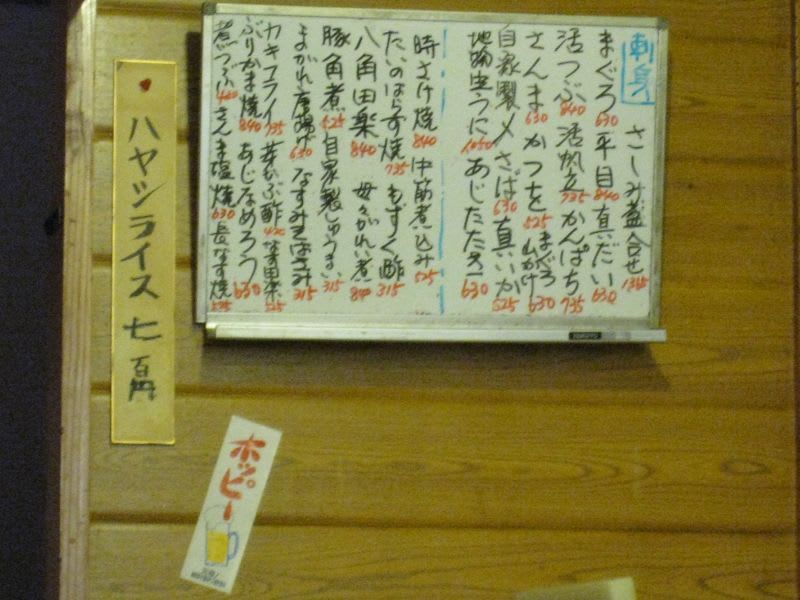 刺身
さしみ盛合せ 1365
まぐろ 630 平目 840 真だい 630
活つぶ 840 活帆立 735 かんぱち 735
さんま 630 かつを 525 まぐろ山かけ 630
自家製〆さば 630 真いか 525
地物生うに 1050 あじたたき 630
時さけ焼 840 牛筋煮込み 525
たいのはらす焼 735 もずく酢 315
八角田楽 840 女々がれい煮 840
豚角煮 525 自家製しゅうまい 315
よがれ唐揚げ 630 なすみそはさみ 315
カキフライ 735 芽かぶ酢 420 なす田楽 525
ぶりかま焼 840 あじなめろう 630
煮つぶ 420 さんま塩焼 630 長なす焼 525
ハヤシライス 七百円
ホッピー